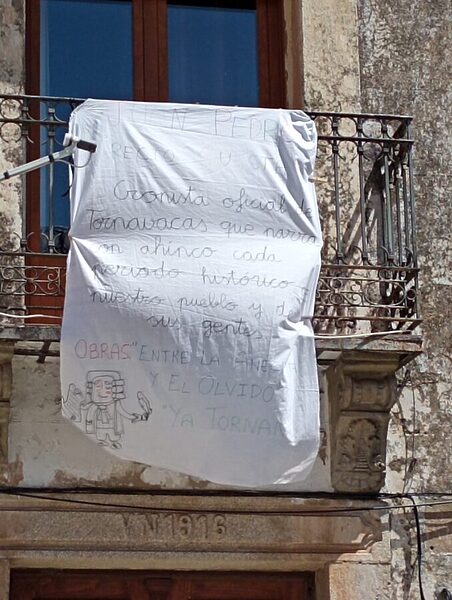 PEDR
Cronista oficial de
Tornavacas que narra
on ahinco cada
periodo histórico
nuestro pueblo y d
sus gentes
OBRAS: "ENTRE LA
Y EL OLVIDO
"YA TORNAN
YN 1916